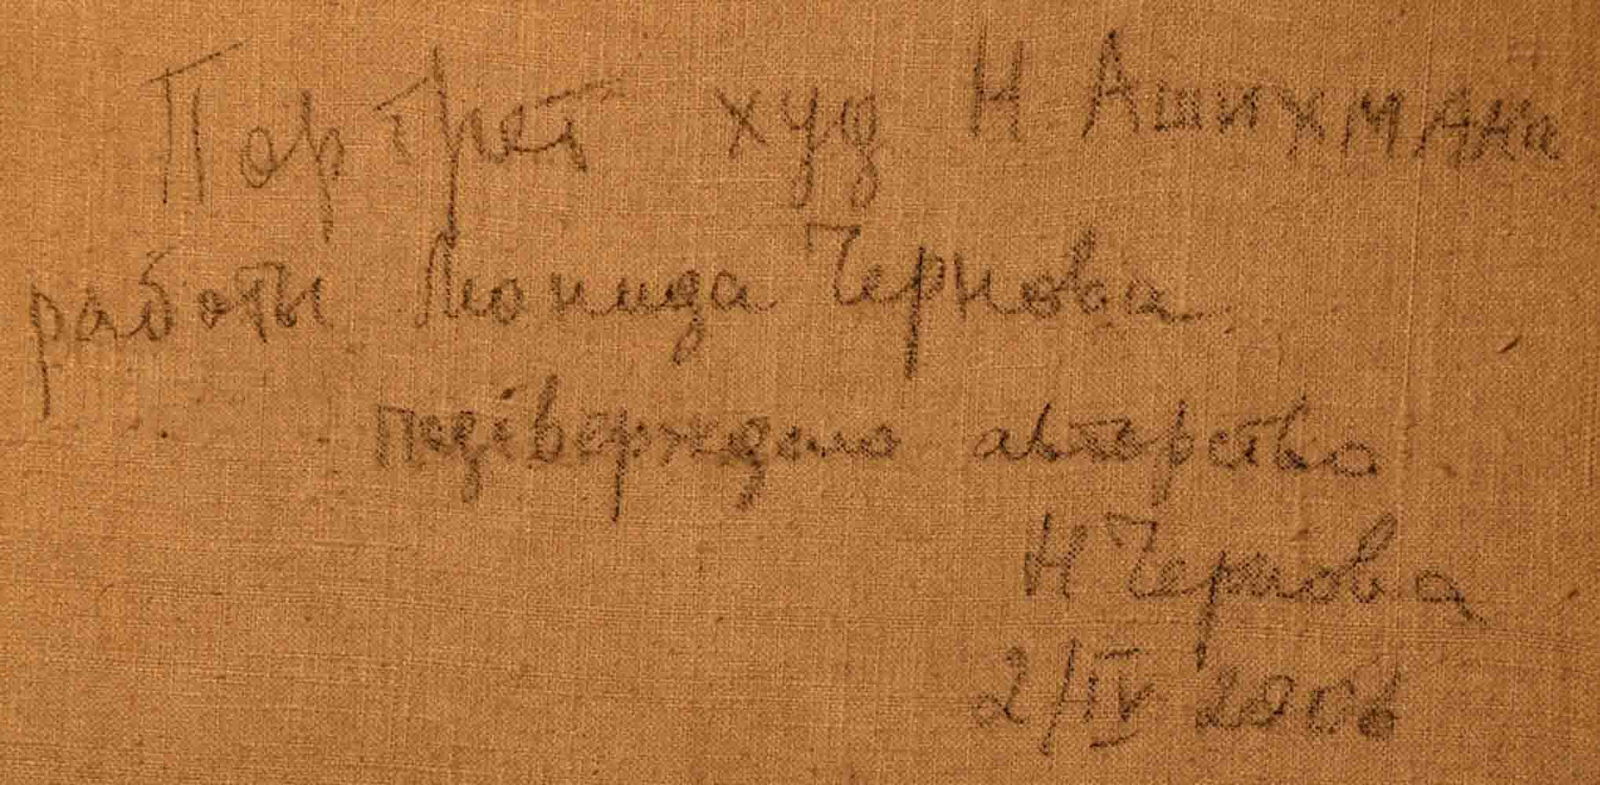 Портрет худ Н Ашихмана
работы Леонида Чернова
подтверждаю авторство
Н Чернова
2/IV 2006